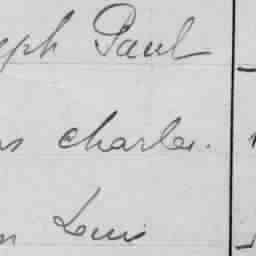 eph Paul
s Charles.
n Louis